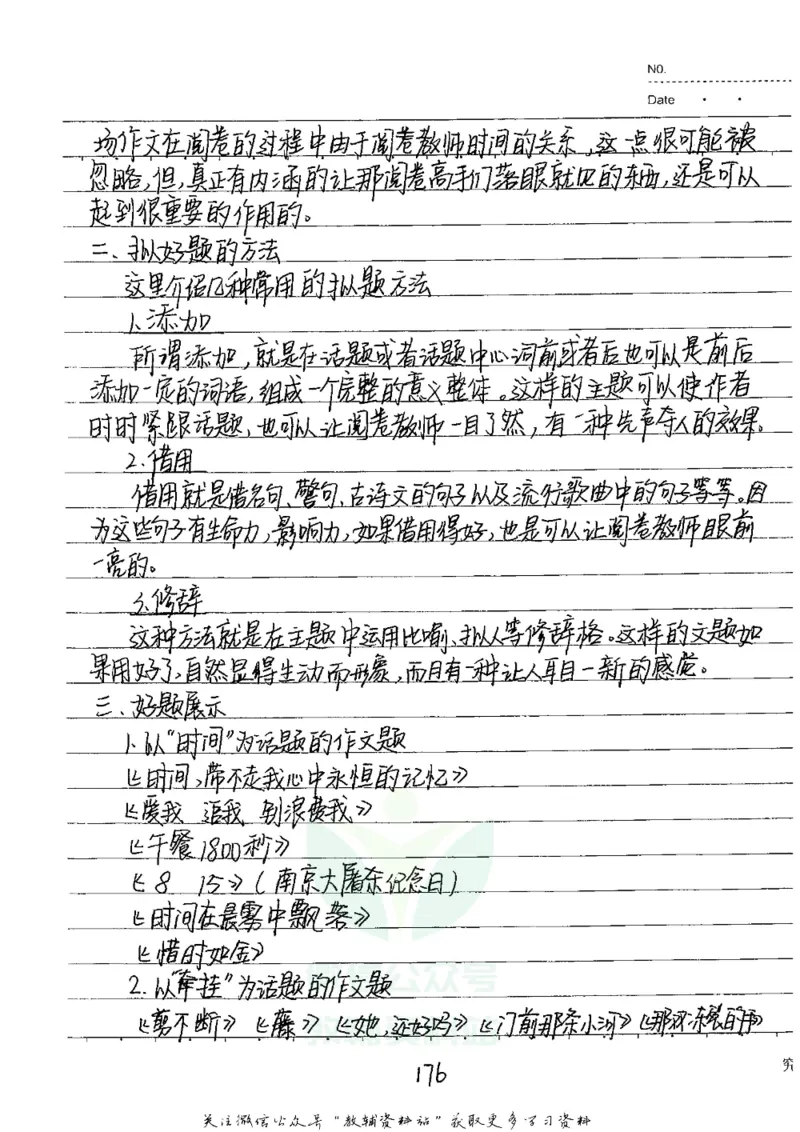 NO.
Date
场作文在阅卷的过程中由于阅卷教师时间的关系,这一点很可能被
忽略,但,真正有内涵的让那阅卷高手们落眼就见的东西,还是可以
起到很重要的作用的。
二、拟好题的方法
这里介绍几种常用的拟题方法
1.添加
所谓添加,就是在话题或者话题中心词前或者后也可以是前后
添加一定的词语,组成一个完整的意义整体。这样的主题可以使作者
时时紧跟话题,也可以让阅卷教师一目了然,有一种先声夺人的效果。
2.借用
借用就是借名句、警句、古诗文的句子以及流行歌曲中的句子等等。因
为这些句子有生命力,影响力,如果借用得好,也是可以让阅卷教师眼前
一亮的。
3.修辞
这种方法就是在主题中运用比喻、拟人等修辞格。这样的文题如
果用好了,自然显得生动而形象,而且有一种让人耳目一新的感觉。
三、好题展示
1.以“时间”为话题的作文题
《时间,带不走我心中永恒的记忆》
《爱我 追我 别浪费我》
《午餐1800秒》
《8 15》(南京大屠杀纪念日)
《时间在晨雾中飘落》
《惜时如金》
2.以“牵挂”为话题的作文题
《剪不断》《藤》《她,还好吗》《门前那条小河》《那双冻裂的手》
176
究
关注微信公众号“教辅资料站”获取更多学习资料